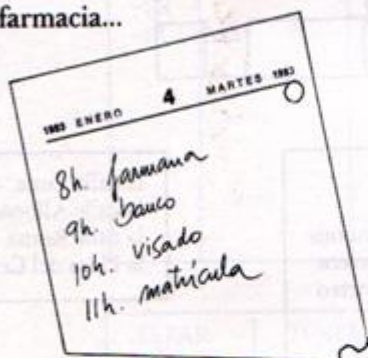 farmacia...
1983 ENERO 4 MARTES 1983
8h. farmacia
9h. banco
10h. visado
11h. matrícula